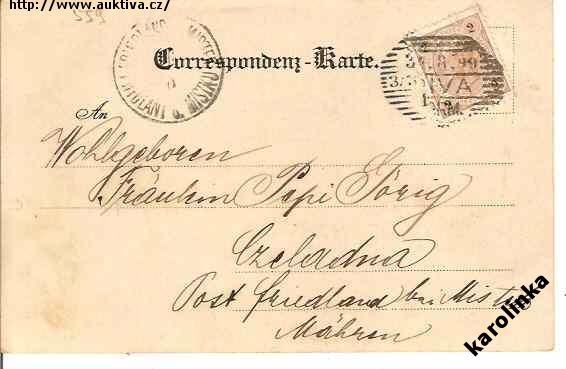 http://www.auktiva.cz/
559
Correspondenz-Karte.
2 2
30.8.99
An
Wohlgeboren
Fräulein Pepi Görig
Czeladna
Post Friedland bei Mistek
Mähren
karolinka